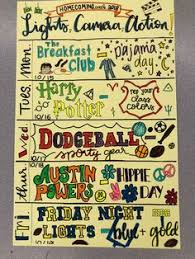 HOMECOMING week 2018
Lights, Camera, Action!
Mon
The Breakfast Club
10/15
pajama day
Tues
Harry Potter
10/16
rep your class colors
Wed
DODGEBALL
sporty year
thur
AUSTIN POWERS
10/18
#HIPPIE
#DAY
Fri
FRIDAY NIGHT LIGHTS
blue + gold